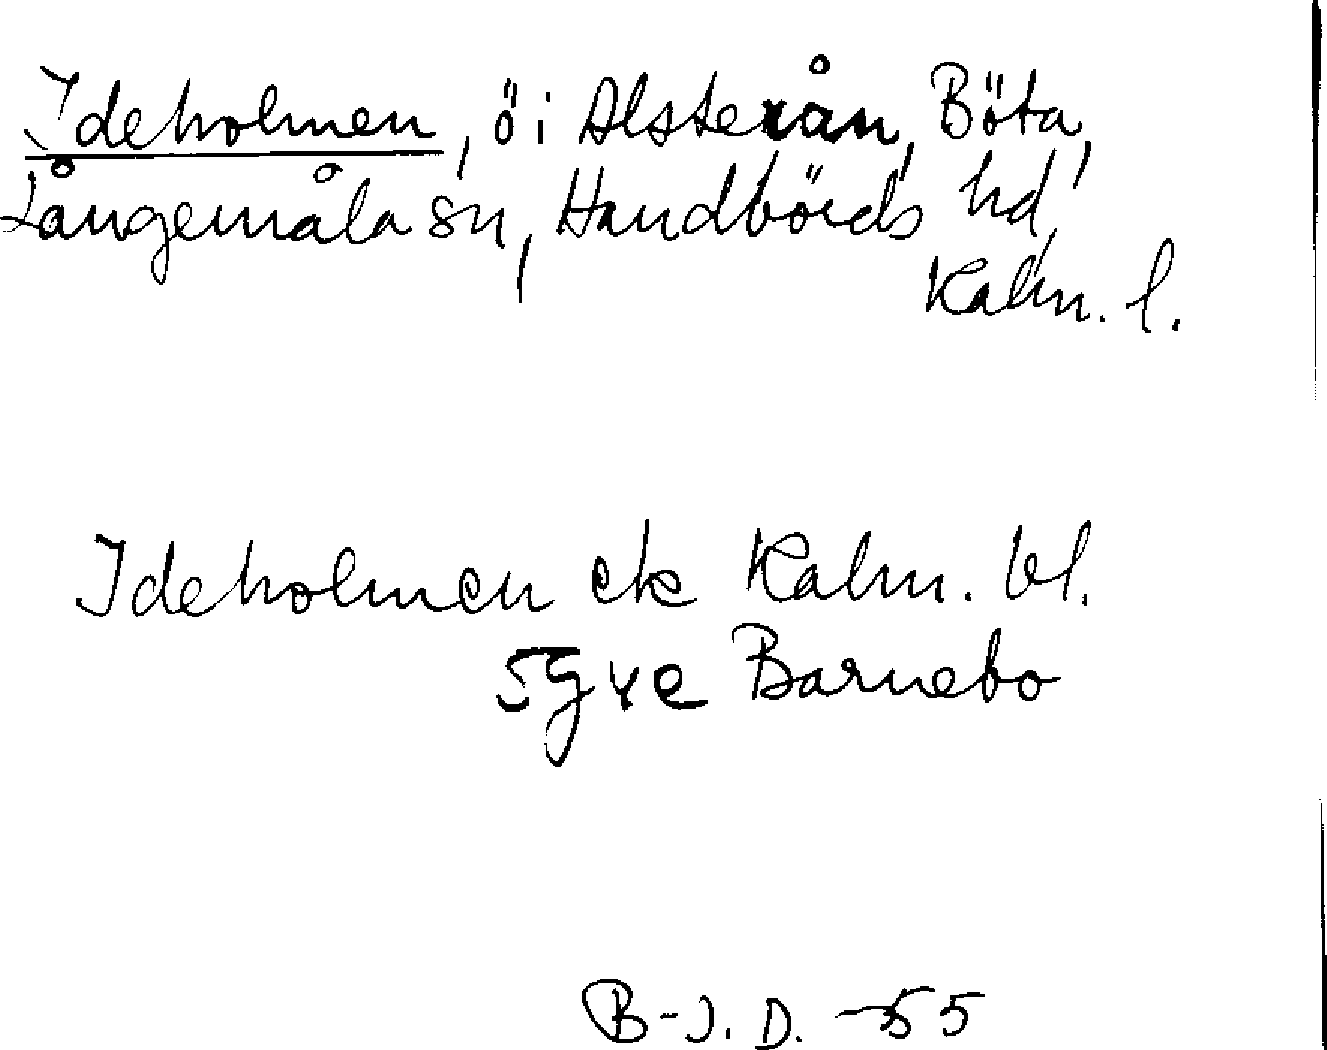 Ideholmen, ö i Alsterån, Böta,
Långemåla sn, Handbörds hd,
Kalm. l.
Ideholmen ek Kalm. bl.
5g4e Barnebo
B-J. D. -55